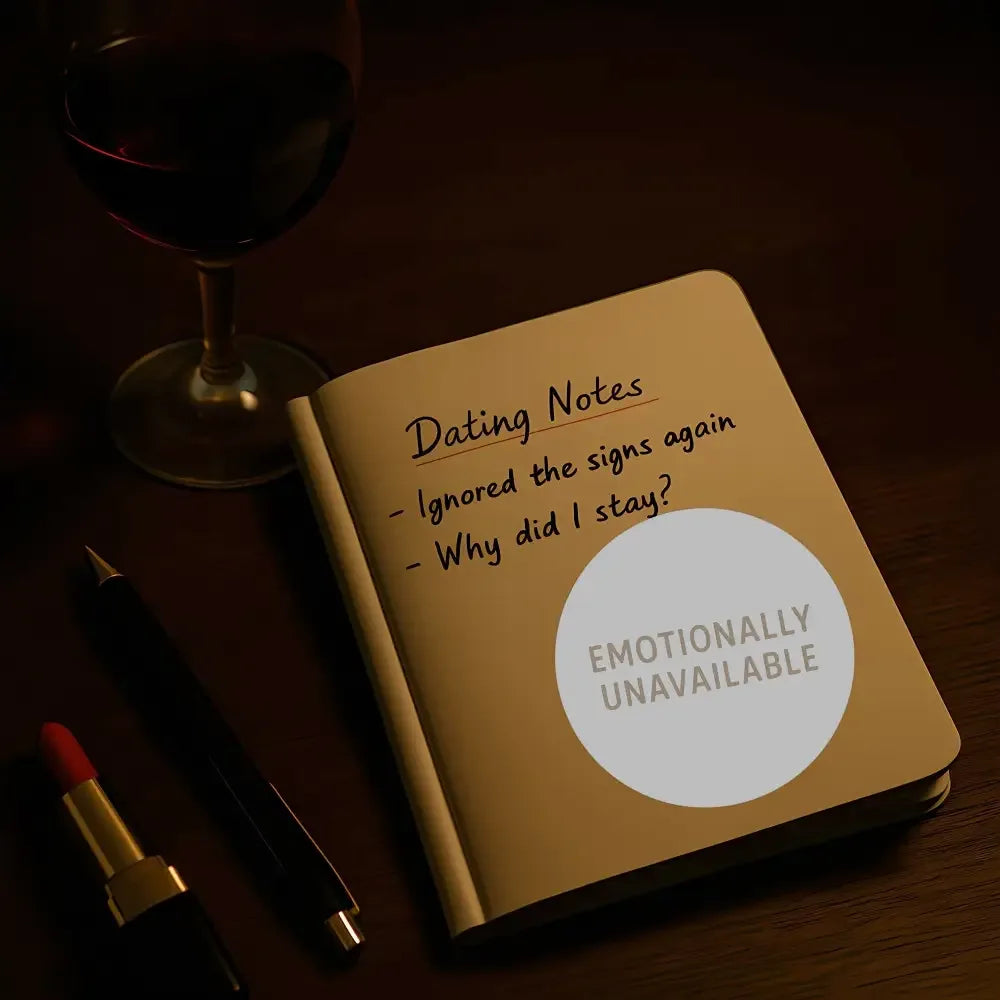 Dating Notes
- Ignored the signs again
- Why did I stay?
EMOTIONALLY
UNAVAILABLE